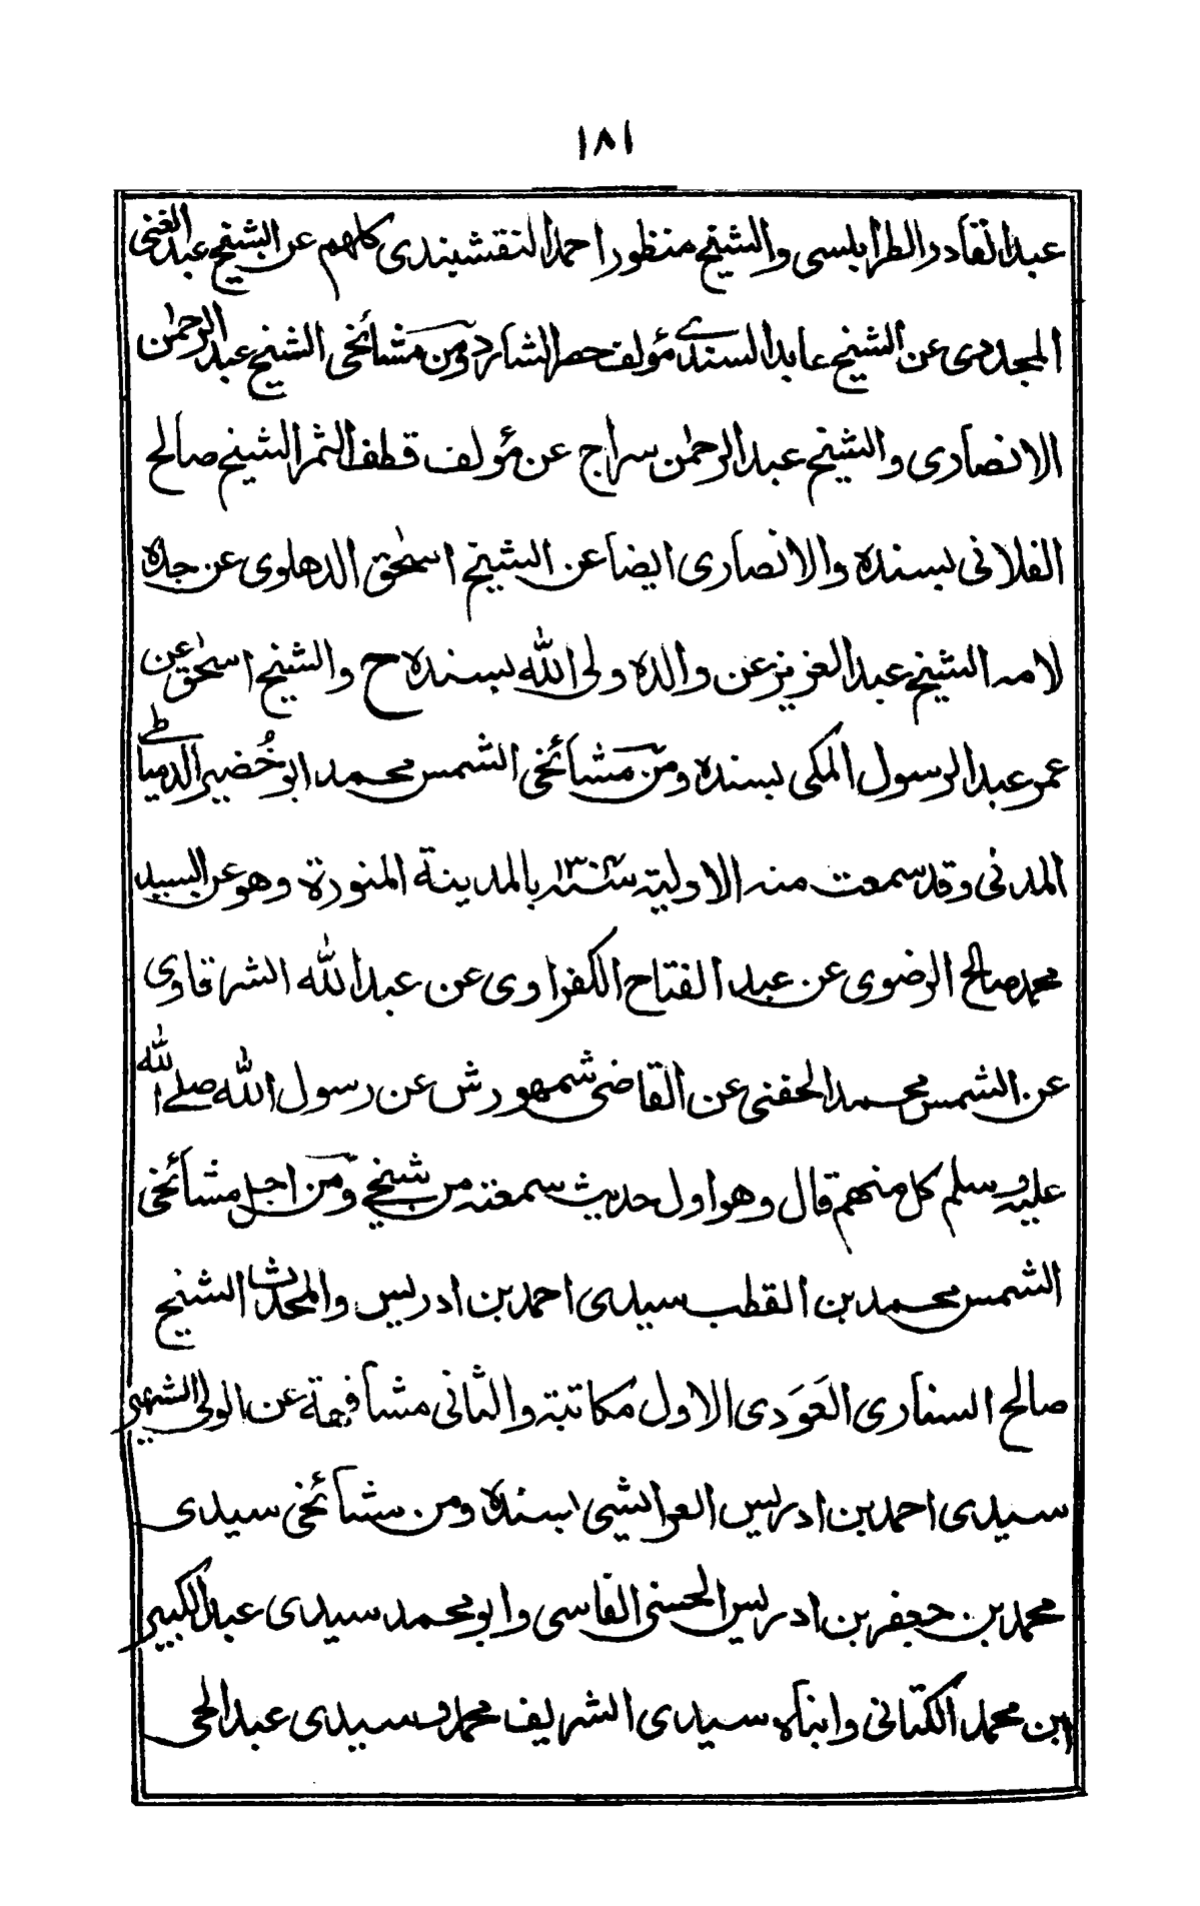 ١٨١
عبد القادر الطرابلسى والشيخ منظور احمد النقشبندى كلهم عن الشيخ عبد الغنى
المجددى عن الشيخ عابد السندى مؤلف حصر الشارد ومن مشائخى الشيخ عبد الرحمٰن
الانصارى والشيخ عبد الرحمٰن سراج عن مؤلف قطف الثمر الشيخ صالح
الفلانى بسنده والانصارى ايضا عن الشيخ اسحٰق الدهلوى عن جده
لامه الشيخ عبد العزيز عن والده ولى الله بسنده ح والشيخ اسحٰق عن
عمر عبد الرسول المكى بسنده ومن مشائخى الشمس محمد ابو خُضير الدمياطى
المدنى وقد سمعت منه الاولية بالمدينة المنورة وهو عن السيد
محمد صالح الرضوى عن عبد الفتاح الكفراوى عن عبد الله الشرقاوى
عن الشمس محمد الحفنى عن القاضى شمهورش عن رسول الله صلى الله
عليه وسلم كل منهم قال وهو اول حديث سمعته من شيخى ومن اجل مشائخى
الشمس محمد بن القطب سيدى احمد بن ادريس والمحدث الشيخ
صالح السنارى العَوَدى الاول مكاتبة والثانى مشافهة عن الولى الشهير
سيدى احمد بن ادريس العرائيشى بسنده ومن مشائخى سيدى
محمد بن جعفر بن ادريس الحسنى الفاسى وابو محمد سيدى عبد الكبير
ابن محمد الكتانى وابناه سيدى الشريف محمد وسيدى عبد الحى